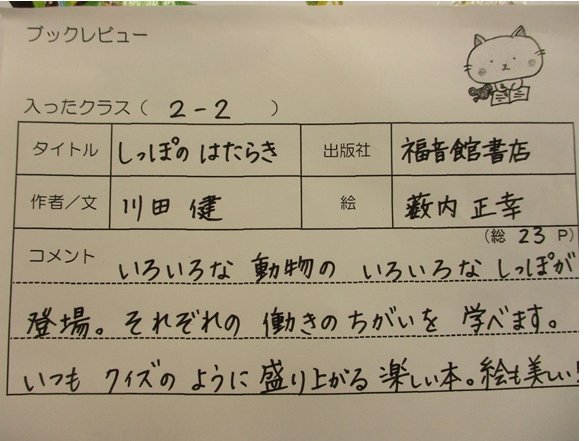 ブックレビュー
入ったクラス（ 2-2 ）
タイトル しっぽの はたらき 出版社 福音館書店
作者／文 川田 健 絵 薮内 正幸
（総 23 P）
コメント いろいろな 動物の いろいろな しっぽが
登場。それぞれの 働きのちがいを 学べます。
いつも クイズの ように 盛り上がる 楽しい本。絵も美しい!